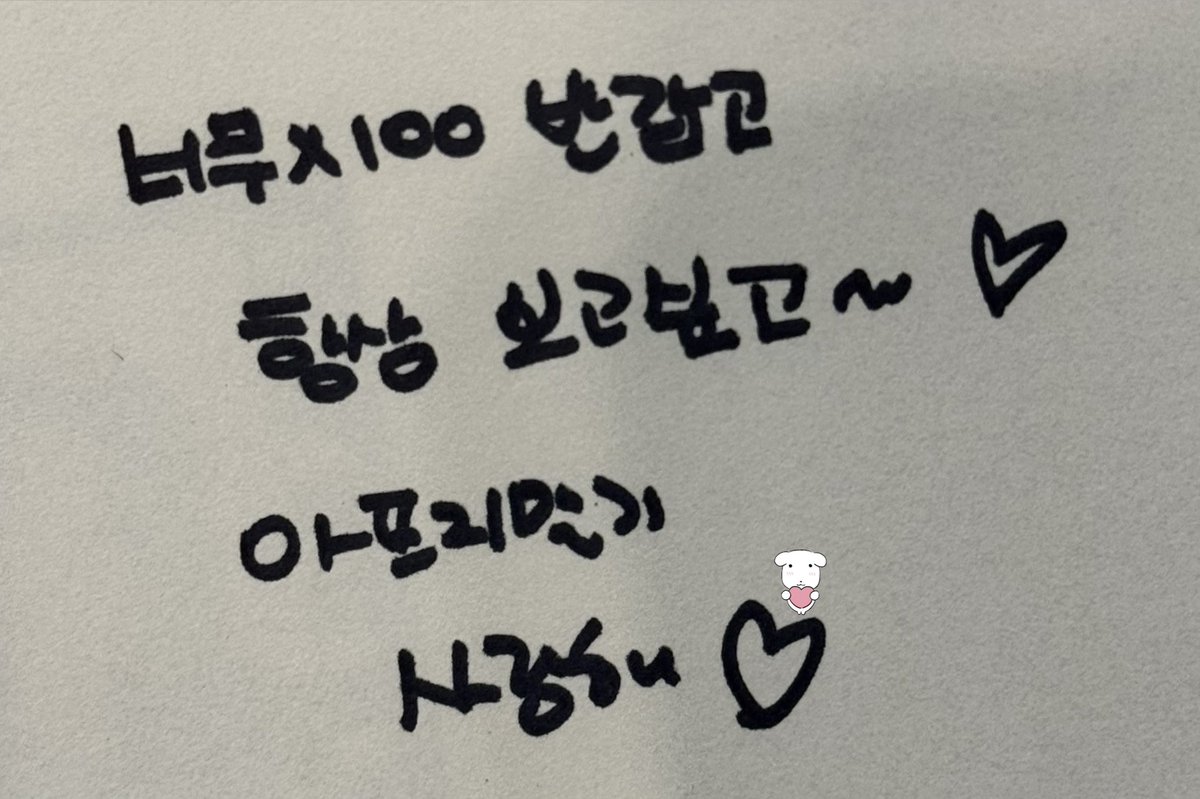 너무x100 반갑고
항상 보고싶고~ ♡
아프리만기
사랑해 ♡